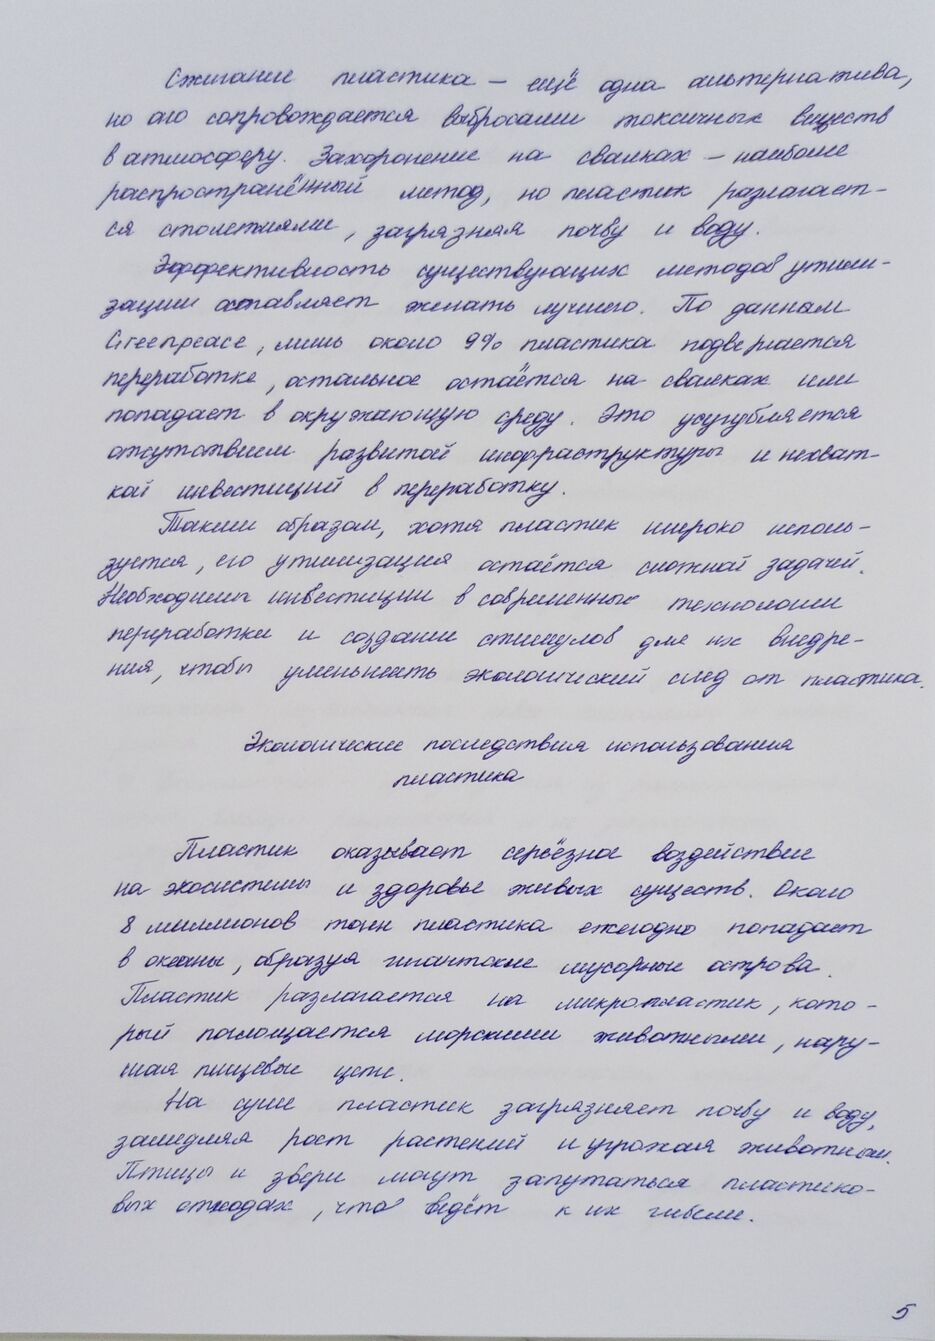 Сжигание пластика – ещё одна альтернатива,
но оно сопровождается выбросами токсичных веществ
в атмосферу. Захоронение на свалках – наиболее
распространённый метод, но пластик разлагает-
ся столетиями, загрязняя почву и воду.
Эффективность существующих методов утили-
зации оставляет желать лучшего. По данным
Greenpeace, лишь около 9% пластика подвергается
переработке, остальное остаётся на свалках или
попадает в окружающую среду. Это усугубляется
отсутствием развитой инфраструктуры и нехват-
кой инвестиций в переработку.
Таким образом, хотя пластик широко исполь-
зуется, его утилизация остаётся сложной задачей.
Необходимы инвестиции в современные технологии
переработки и создание стимулов для их внедре-
ния, чтобы уменьшить экологический след от пластика.
Экологические последствия использования
пластика
Пластик оказывает серьёзное воздействие
на экосистемы и здоровье живых существ. Около
8 миллионов тонн пластика ежегодно попадает
в океаны, образуя гигантские мусорные острова.
Пластик разлагается на микропластик, кото-
рый поглощается морскими животными, нару-
шая пищевые цепи.
На суше пластик загрязняет почву и воду,
замедляя рост растений и угрожая животным.
Птицы и звери могут запутаться пластико-
вых отходах, что ведёт к их гибели.
5